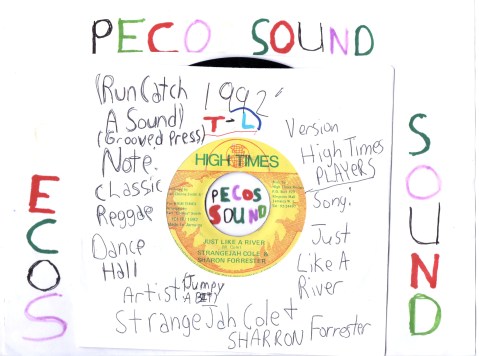 PECO SOUND
(Run Catch
A Sound)
(Grooved Press)
Note.
Classic
Reggae
Dance
Hall
1992'
T-L
Version
High Times
PLAYERS
Song:
Just
Like A
River
HIGH TIMES
PECOS
SOUND
JUST LIKE A RIVER
STRANGEJAH COLE &
SHARON FORRESTER
Artist
Jumpy
StrangeJah Cole +
SHARRON Forrester
ECOS
SOUND